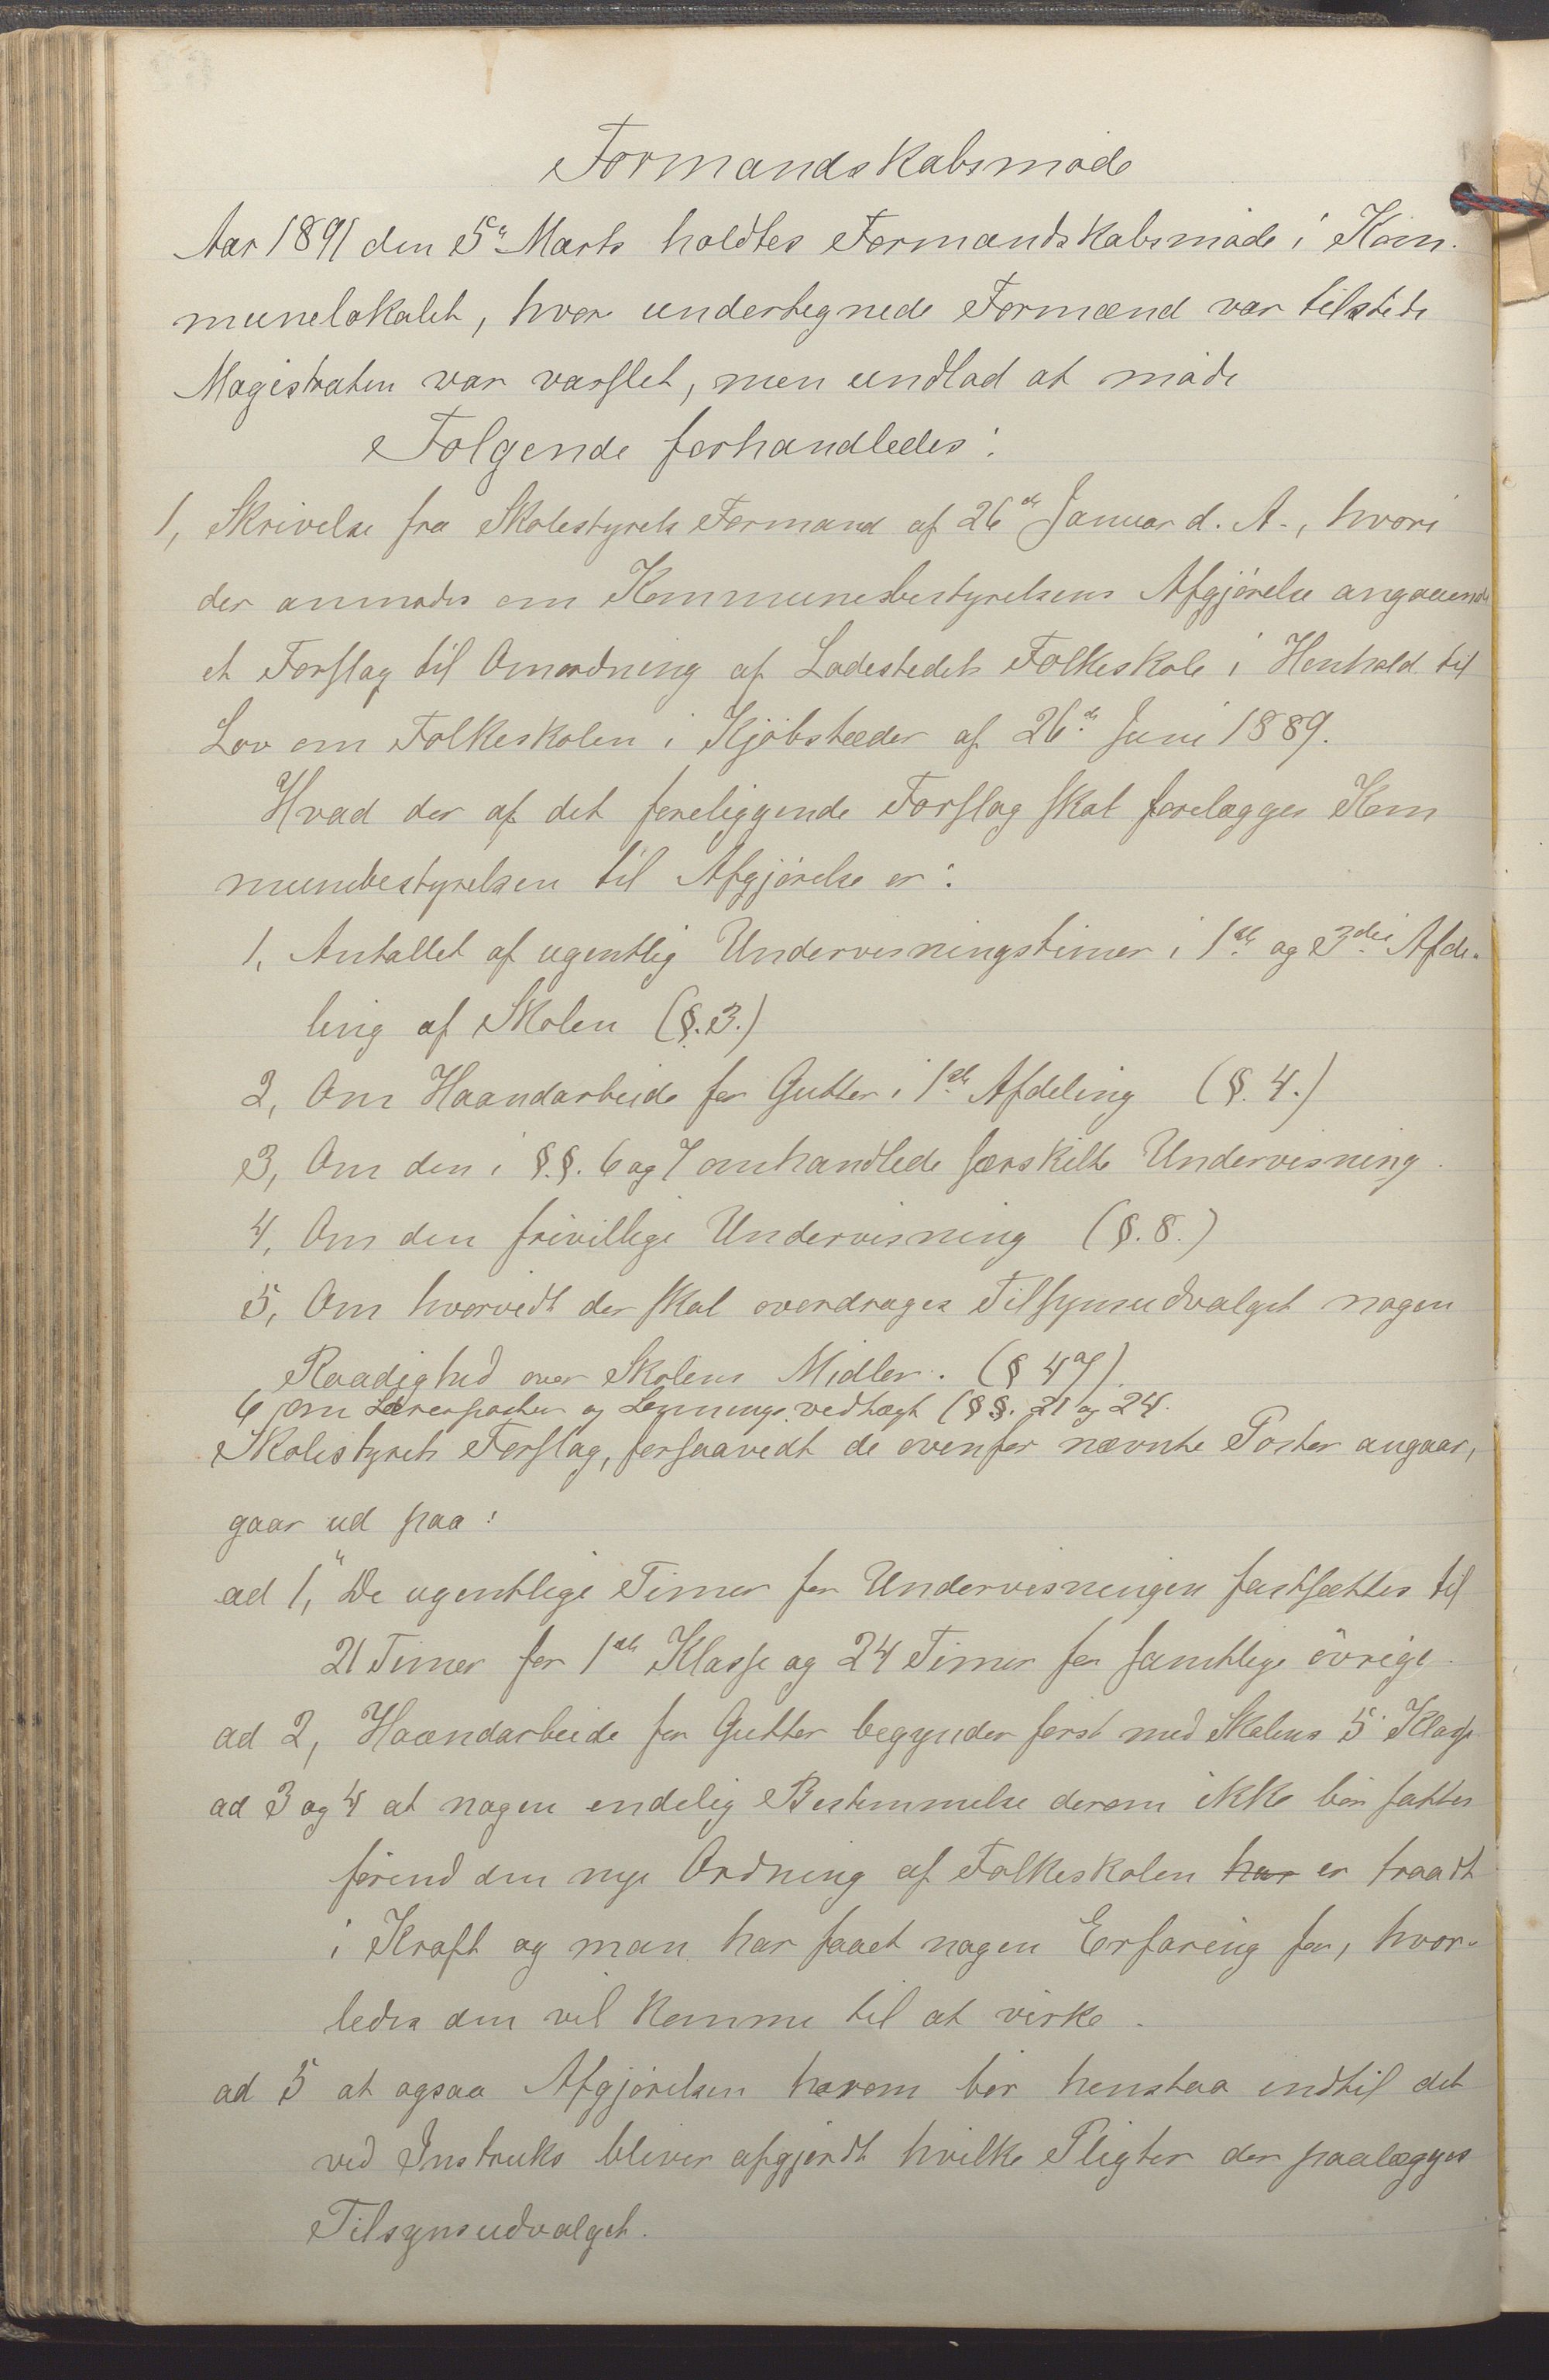 Formandskabsmøde
Aar 1891 den 5te Marts holdtes Formandskabsmøde i Kom-
munelokalet, hvor undertegnede Formænd var tilstede
Magistraten var varslet, men undlod at møde
Følgende forhandledes:
1, Skrivelse fra Skolestyrets Formand af 26de Januar d. A., hvori
der anmodes om Kommunesbestyrelsens Afgjørelse angaaende
et Forslag til Omordning af Ladestedets Folkeskole i Henhold til
Lov om Folkeskolen i Kjøbstæder af 26de Juni 1889.
Hvad der af det foreliggende Forslag skal forelægges Kom
munebestyrelsen til Afgjørelse er:
1, Antallet af ugentlig Undervisningstimer i 1ste og 3die Afde-
ling af Skolen (§.3.)
2, Om Haandarbeide for Gutter i 1ste Afdeling (§. 4.)
3, Om den i §.§. 6 og 7 omhandlede særskilte Undervisning.
4, Om den frivillige Undervisning (§.8.)
5, Om hvorvidt der skal overdrages Tilsynsudvalget nogen
Raadighed over Skolens Midler. (§ 47).
6 om Lærerposter og Lønningsvedtægt (§§. 21 og 24.
Skolestyrets Forslag, forsaavidt de ovenfor nævnte Poster angaar,
gaar ud paa:
ad 1, "De ugentlige Timer for Undervisningen fastsættes til
21 Timer for 1ste Klasse og 24 Timer for samtlige øvrige.
ad 2, Haandarbeide for Gutter begynder først med Skolens 5. Klasse
ad 3 og 4 at nogen endelig Bestemmelse derom ikke bør fattes
førend den nye Ordning af Folkeskolen har er traadt
i Kraft og man har faaet nogen Erfaring for, hvor-
ledes den vil komme til at virke.
ad 5 at ogsaa Afgjørelsen herom bør henstaa indtil det
ved Instruks bliver afgjordt hvilke Pligter der paalægges
Tilsynsudvalget.